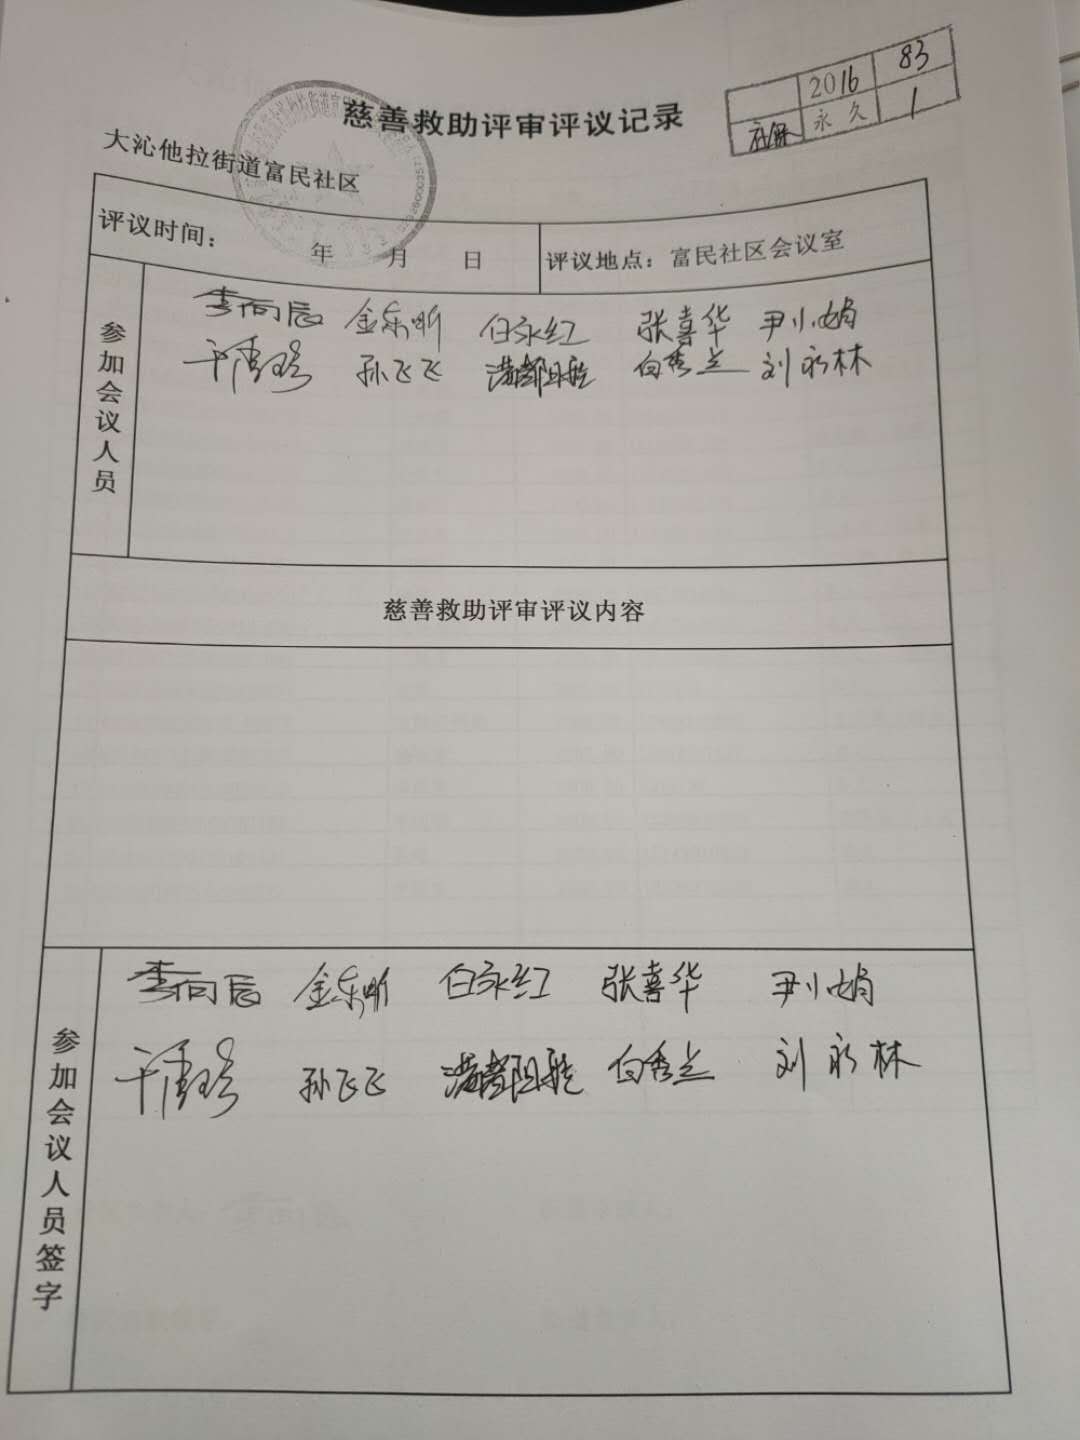 2016 83
社保 永久 1
慈善救助评审评议记录
大沁他拉街道富民社区
评议时间： 年 月 日 评议地点：富民社区会议室
参加会议人员
李向辰 金东昕 白永红 张喜华 尹小娟
孙飞飞 白秀兰 刘永林
慈善救助评审评议内容
参加会议人员签字
李向辰 金东昕 白永红 张喜华 尹小娟
孙飞飞 白秀兰 刘永林